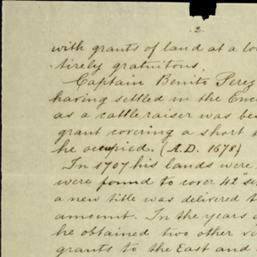 2
with grants of land at a lo
tirely gratuitous.
Captain Benito Perez
having settled in the Enc
as a cattle raiser was be
grant covering a short
he occupied. (A.D. 1678)
In 1707 his lands were
were found to cover 42 "s
a new title was delivered t
amount. In the years o
he obtained two other
grants to the East and